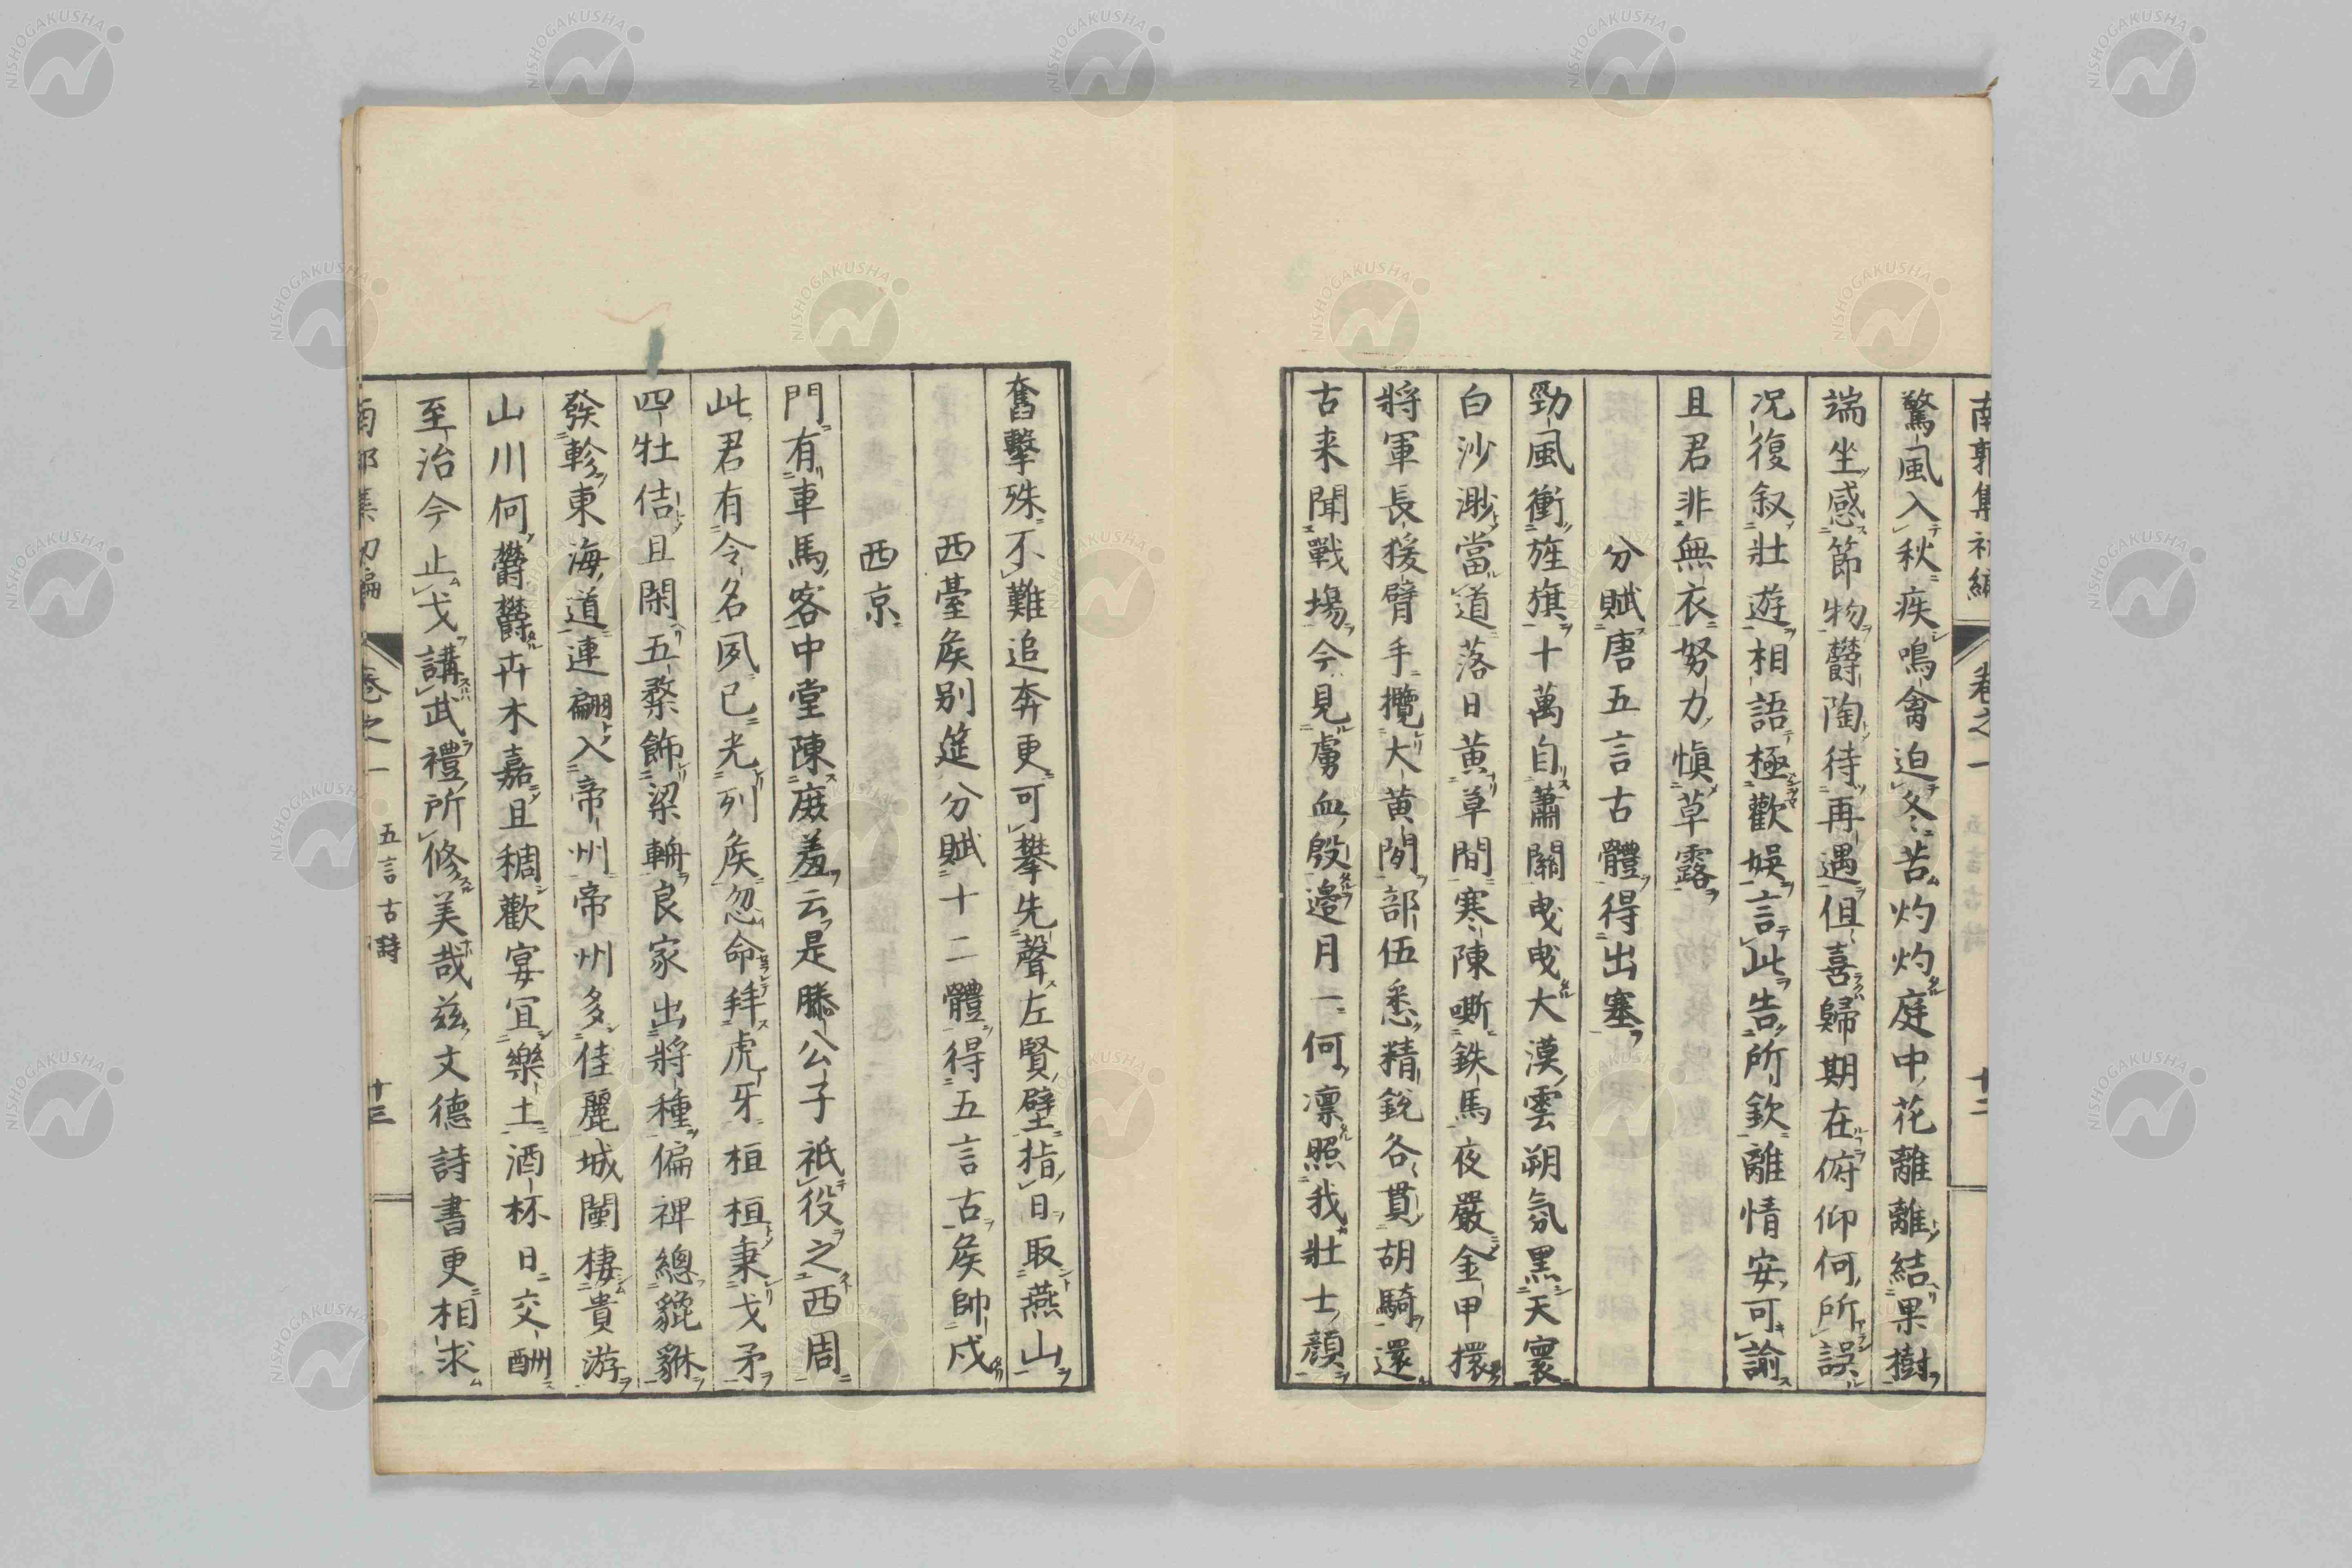 南郭集初編 卷之一 十二
驚風入秋疾鳴禽迫冬苦灼灼庭中花離離結果樹
端坐感節物欝陶待再遇但喜歸期在俯仰何所誤
况復叙壯遊相語極歡娛言此告所欽離情安可諭
且君非無衣努力慎草露
分賦唐五言古體得出塞
勁風衝旌旗十萬自蕭關曳曳大漠雲朔氛黑天寰
白沙渺當道落日黄草間寒陳嘶鉄馬夜嚴金甲擐
將軍長猨臂手攬大黄閒部伍悉精銳各貫胡騎還
古来聞戰塲今見虜血殷邉月一何凛照我壯士顔
奮擊殊不難追奔更可攀先聲左賢壁指日取燕山
西臺矦别筵分賦十二體得五言古矦帥戍
西京
門有車馬客中堂陳庶羞云是滕公子祇役之西周
此君有令名夙已光列矦忽命拜虎牙桓桓秉戈矛
四牡佶且閑五楘飾梁輈良家出將種偏裨總貔貅
發軫東海道連翩入帝州帝州多佳麗城闉棲貴游
山川何欝欝卉木嘉且稠歡宴冝樂土酒杯日交酬
至治今止戈講武禮所修美哉兹文德詩書更相求
南郭集初編 卷之一 五言古詩 十三
NISHOGAKUSHA